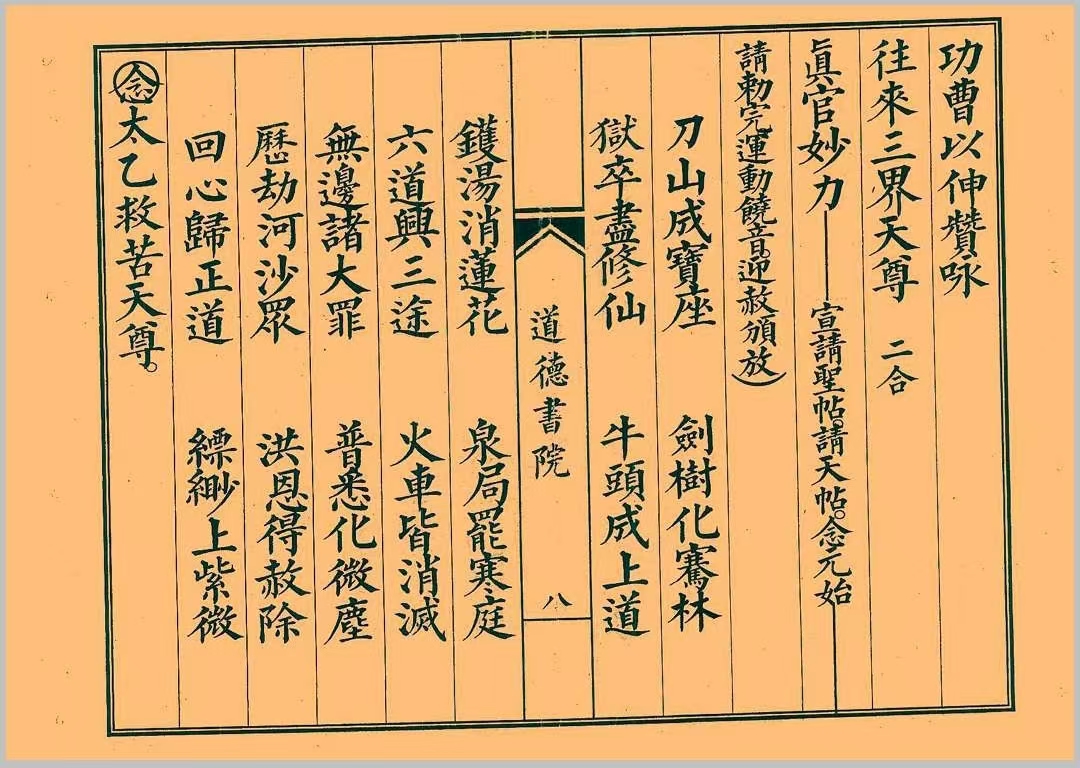 功曹以伸讚咏
往來三界天尊 二合
眞官妙力 宣請聖帖。請天帖。念元始
請勅完運動饒音。迎赦頒放）
刀山成寶座 劍樹化騫林
獄卒盡修仙 牛頭成上道
道德書院 八
鑊湯消蓮花 泉局罷寒庭
六道興三途 火車皆消滅
無邊諸大罪 普悉化微塵
歷劫河沙眾 洪恩得赦除
回心歸正道 縹緲上紫微
念太乙救苦天尊。